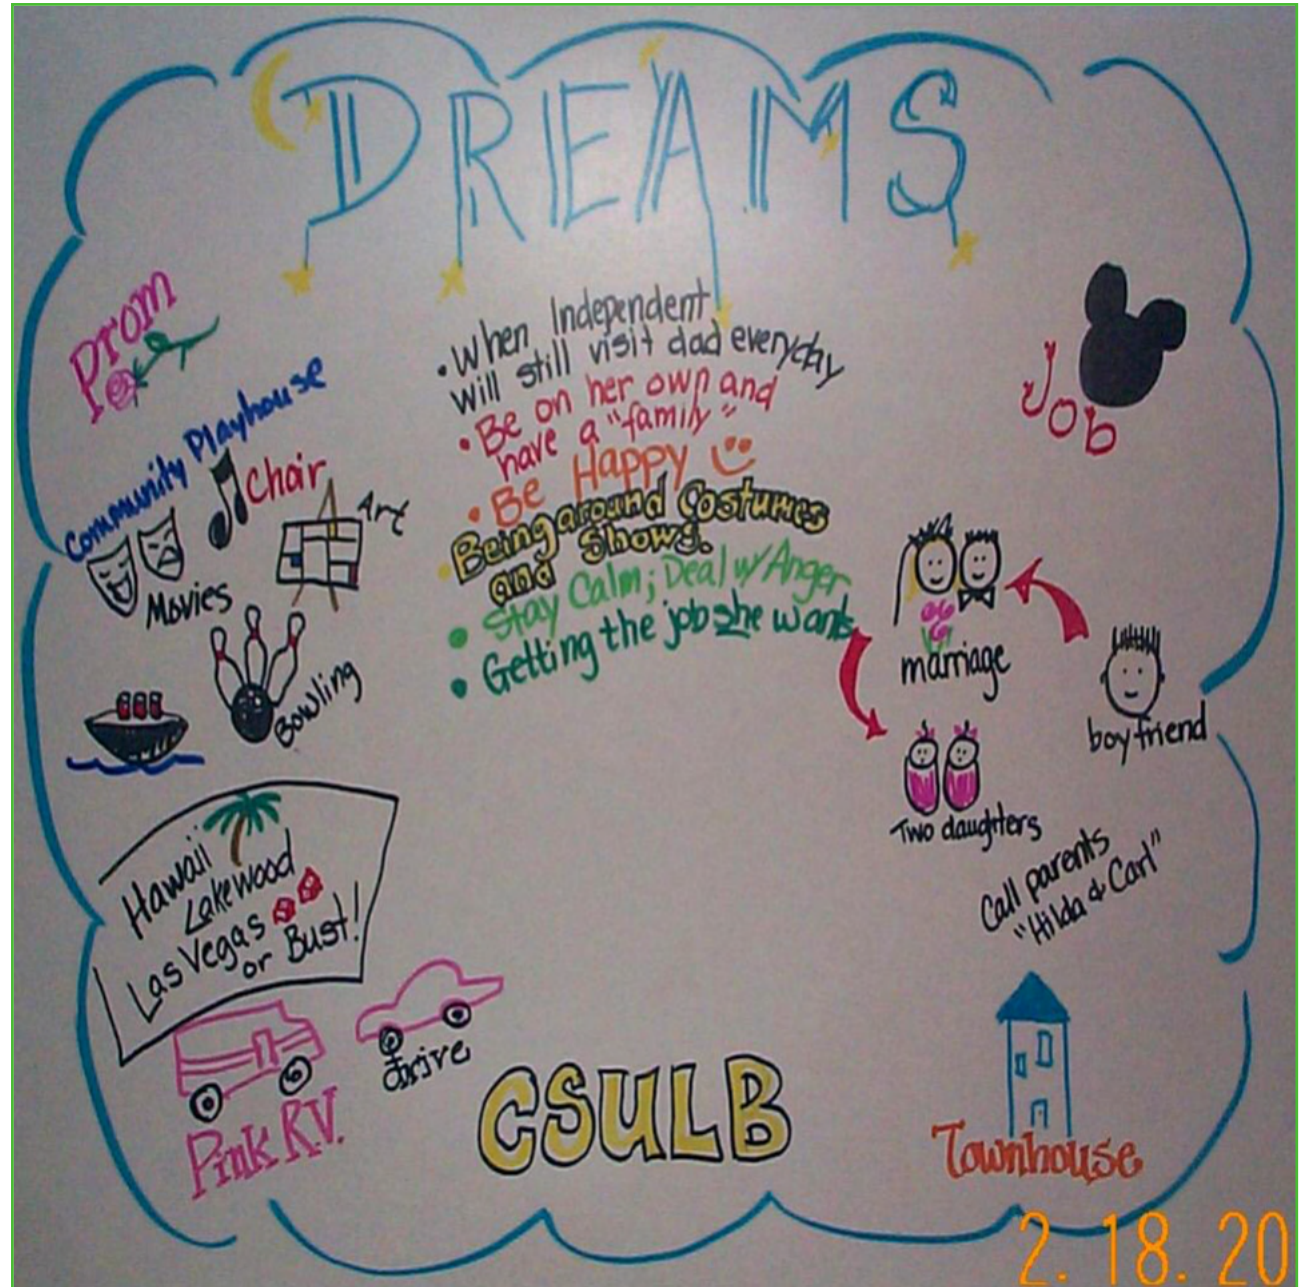 DREAMS
Prom
Community Playhouse
Choir
Art
Movies
Bowling
Hawaii
Lakewood
Las Vegas
or Bust!
drive
Pink R.V.
• When Independent
will still visit dad everyday
• Be on her own and
have a "family"
• Be Happy
• Being around Costumes
and Shows.
• Stay Calm; Deal w/ Anger
• Getting the job she wants
CSULB
Job
marriage
boyfriend
Two daughters
Call parents
"Hilda & Carl"
Townhouse
2. 18. 20